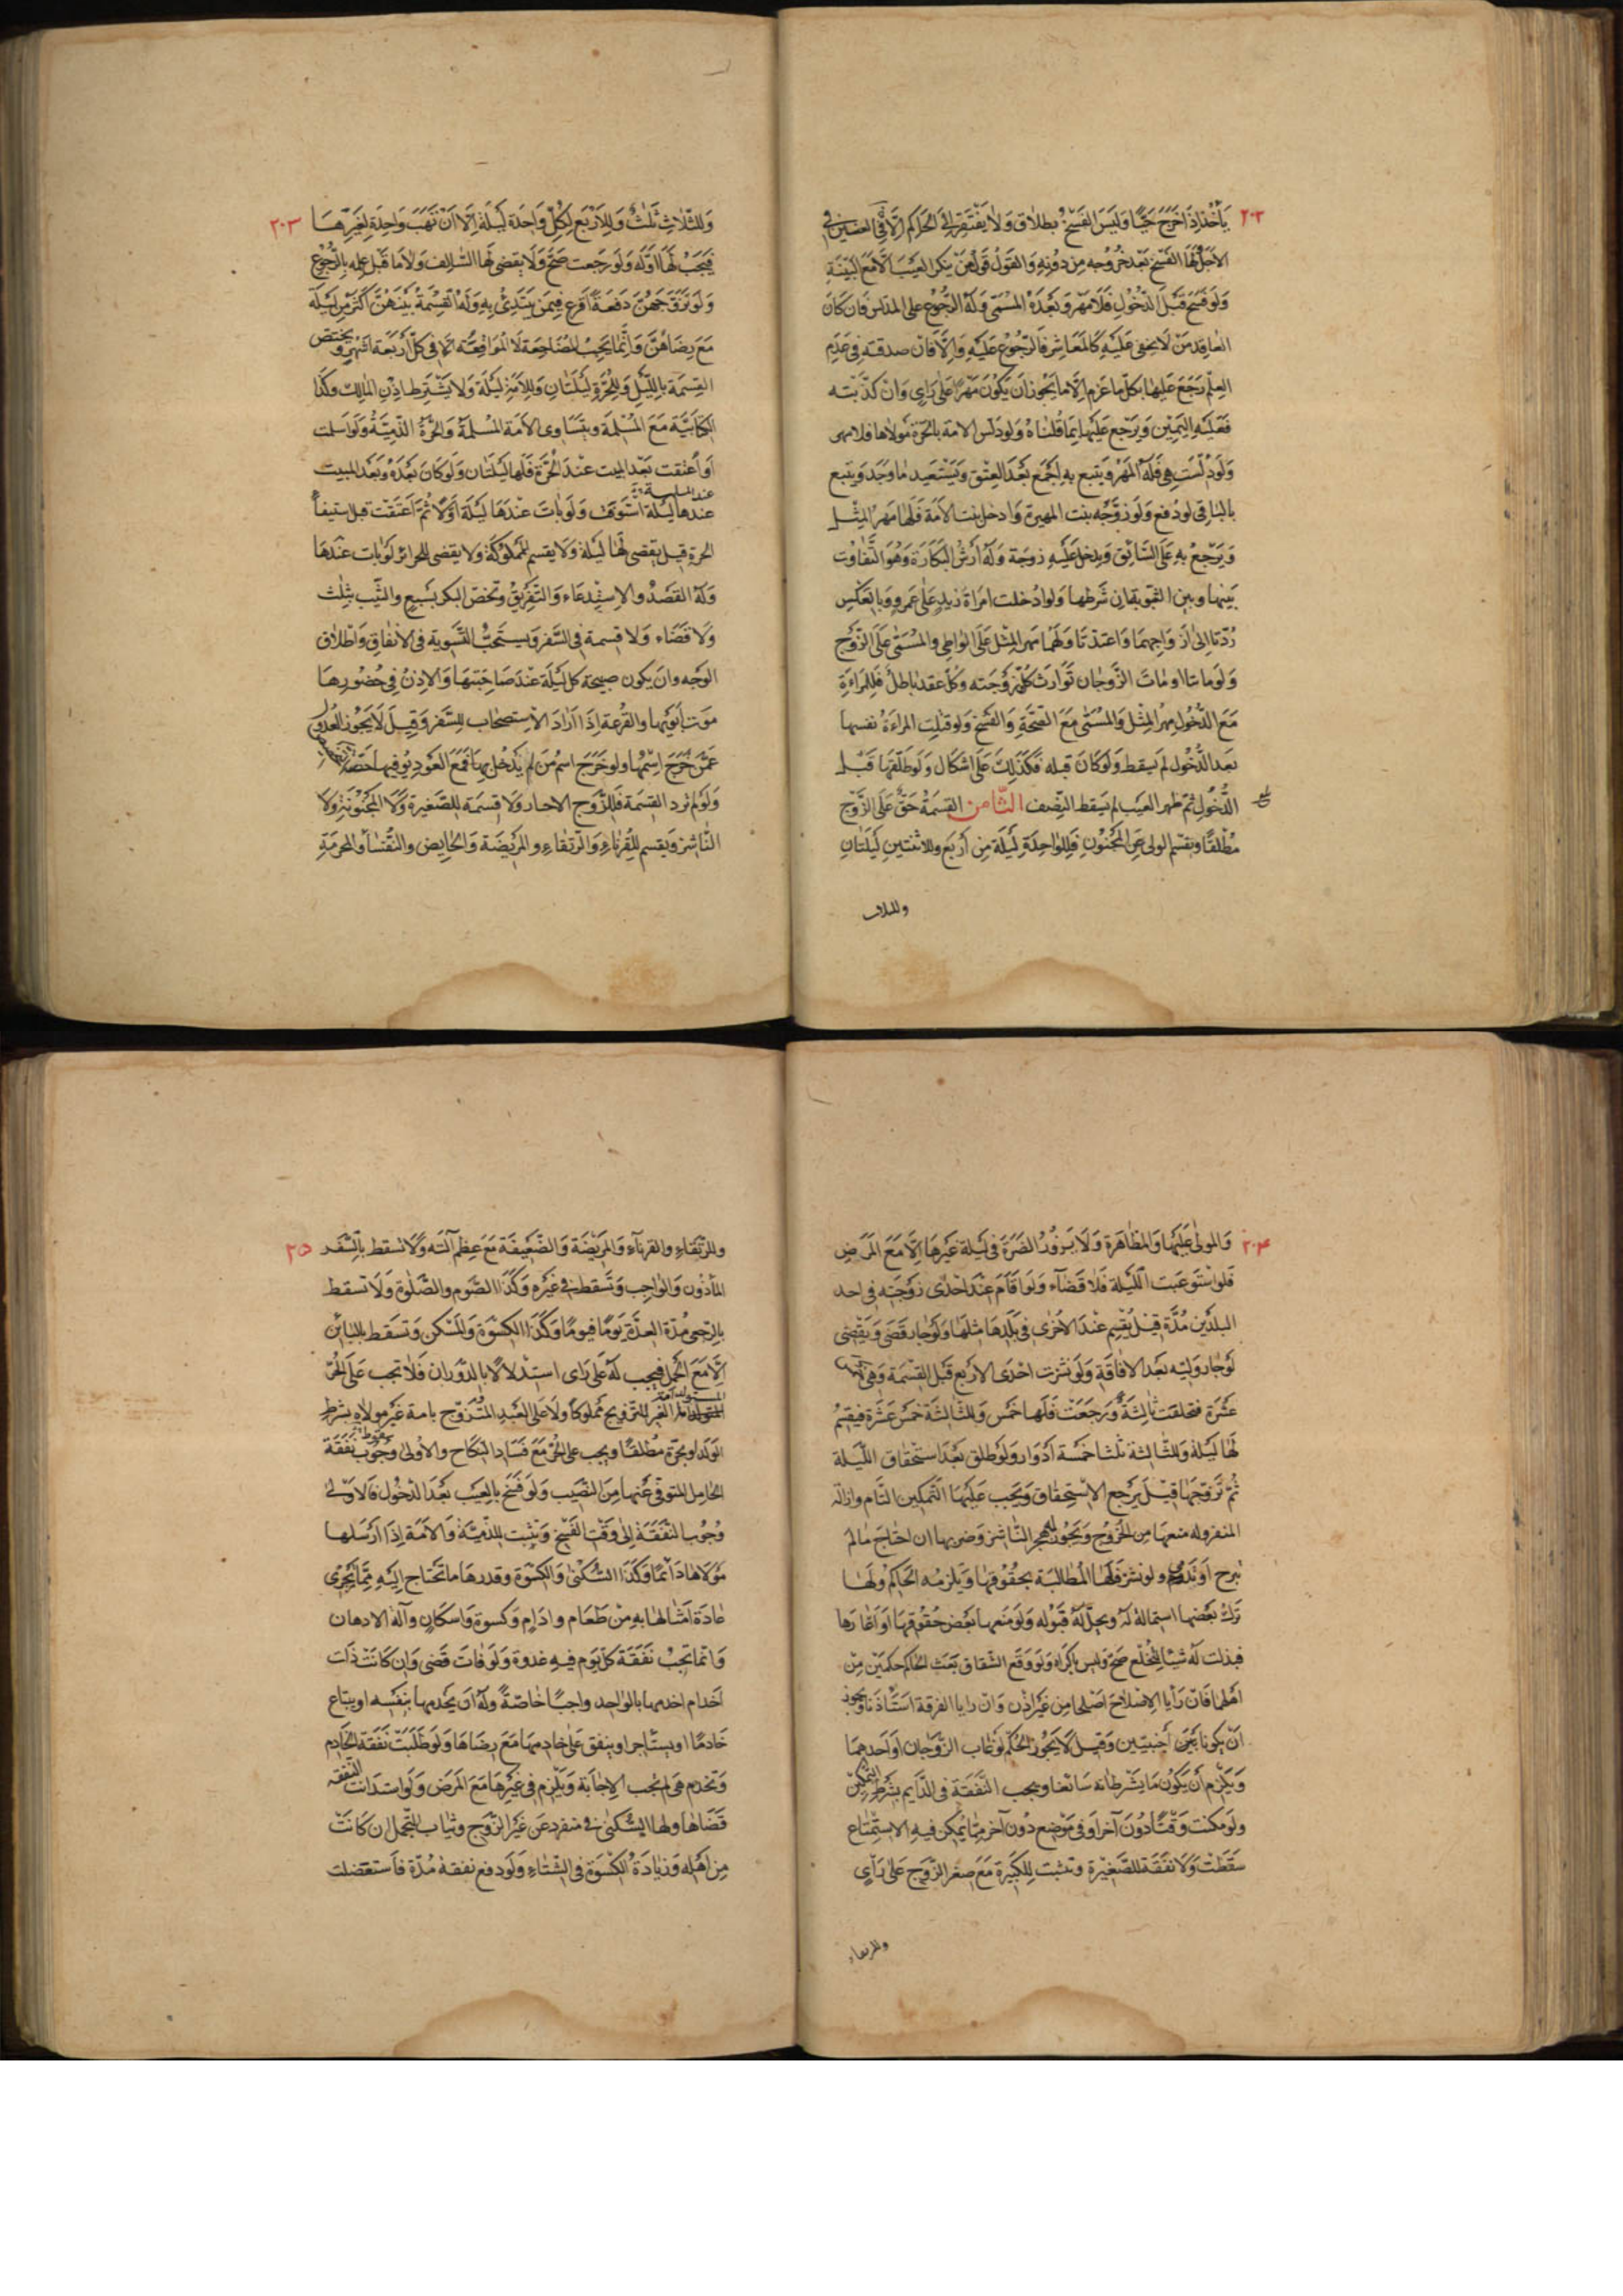 ٢٠٢
يأخذ اذا خَرَجَ حَيًّا وَلَيسَ الفَسْخُ بطلاق وَلا يَفْتَقِر الى الحَاكم الّا فى العنين فى
الأجل ولها الفَسْخ بَعْد خُرُوجه مِن دُونه وَالقول قول مَنْ ينكر العَيبَ الّا مَعَ البَيّنَةِ
وَلَو فسخ قَبْلَ الدّخُولِ فَلا مَهْرَ وَبَعْدَهُ المسَمّى وَلَه الرّجُوع على المدلس فان كانَ
العاقِد مَنْ لا يخفى عَلَيهِ كالمَعَاشر فَالرّجُوع عَلَيهِ وَالّا فان صدقته فى عَدَم
العِلْم رَجَعَ عَلَيها بكل ما غرم الّا ما يَجُوز ان يَكُون مَهْرًا عَلى رَاى وَانْ كذّبته
فَعَلَيهِ اليَمين وَيَرجَع عَلَيهَا بمَا قُلنَاهُ وَلَو دَلّس الامة بالحرّة مَولاها فلا مهر
وَلَو دلّسَت هِى فَلَه المَهْر وَيَتبع بِهِ اجْمَعَ بَعْدَ العِتْق وَيَسْتَعيد مَا وجَد وَيَتبع
بالباقى لو دُفع وَلَو زَوّجَه بنت المهيرة وَادخل بنت الامَة فَلَها مهرُ المِثْل
وَيَرجعُ بِهِ عَلَى السَّائِق وَيدخل عَلَيهِ زوجَة وَلَه أرْشُ البَكَارَة وَهُوَ التَّفاوُت
بَينها وبين الثيوبة ان شَرَطها وَلو ادُخلت امرَاة زيد عَلى عَمرو وَبالعَكس
رُدّتا الى ازوَاجِهما وَاعتَدتَا وَلَهُما مهر المِثْل عَلى الوَاطى والمُسَمّى عَلى الزّوْج
وَلَو ماتتا او مَاتَ الزَّوجَان تَوَارَثَ كُلٌّ زَوْجَته وَكلّ عقد باطل فَلِلمَراةِ
مَعَ الدّخُول مهرُ المِثْل وَالمُسَمّى مَعَ الصّحّةِ وَالفَسخ وَلَو قتلت المراةُ نفسها
بَعد الدّخُول لم يَسْقط وَلَو كَانَ قبله فَكَذَلك عَلَى اشكَال وَلَو طَلّقهَا قَبْلَ
الدّخُول ثمّ ظهر العَيب لم يَسقط النّصف الثّامن القسمَةُ حَقٌّ عَلى الزّوْج
مُطْلقًا ويقسم الولى عَن المَجْنُون فَللوَاحِدَةِ لَيلَة مِن أربَع وللاثنتين لَيلَتانِ
وللثلاث
٢٠٣
وَللثّلاثِ ثَلثٌ وَللاَربَع لِكلّ وَاحِدَة لَيلَة الّا انْ تهَبَ وَاحِدَة لِغَيرِهَا
فيَجبُ لهَا اولَه وَلَو رَجَعت صَحَّ وَلا يقضى لهَا السّالف وَلا ما قَبْل عِلمه بالرّجُوع
وَلَو تَزَوّجَهُنَّ دَفعَةً اقرَع فِيمَن يَبتَدئ بِهِ وَلَهُ القسمَةُ بَينَهُنَّ اكثَر مِن لَيلَة
مَعَ رِضَاهُنَّ وَانّمَا يَجبُ المضَاجعَة لا المُوَاقعَة الّا فى كلّ أربَعَة اشهُر وَيختصّ
القسمَة باللّيل وَللحُرّةِ لَيلَتان وَللأمة لَيلَة وَلا يَشْتَرط اذن المالك وكَذا
الكتابيّة مَعَ المُسْلمَة ويتساوى الامَة المسْلمَة وَالحُرّةُ الذّمّيّة وَلو اسلمت
او أُعتقت بَعْد المبيت عنْدَ الحُرّةِ فَلَها لَيلَتَان وَلَو كانَ بَعْدَهُ وَبَعْدَ المبيت
عندها لَيلَة استَوتَا وَلَو بَاتَ عنْدَهَا لَيلَة اوّلا ثُمّ اعتَقَت قبل استيفاء
الحرة قيل يقضى لهَا لَيلَة وَلا يقسم للمملوكَة وَلا يقضى للحرائر لَو بَات عنْدَها
وَلَه القَصْدُ وَالاِستِدعَاء وَالتّفريقُ وتخصّ البكر بسَبع والثيّب بثلث
وَلا قَضَاء وَلا قسمة فى السّفر وَيستَحبُّ التّسوِية فى الانفاق وَاطلاق
الوَجه وان يَكون صبيحَة كل لَيلَة عنْد صَاحبَتهَا وَالاذنُ فى حُضُورِها
مَوت أبَويْها والقُرعَة اذَا ارَادَ الاستصحاب للسّفر وَقيل لا يَجُوز العُدول
عَمّن خَرَجَ اسْمُها وَلو خَرَجَ اسْمُ مَن لم يَدخل بهَا فَمَعَ العَود
وَلَو لم ترد القسمَة فَللزّوج الاجبار وَلا قسمَة للصّغيرة وَلا المَجنُونة وَلا
النّاشز وَيقسم للقرناء وَالرّتقاء والمريضَة وَالحايض والنُّفَسَاء وَالمحرمَةِ
٢٠٤
وَالمولى عَلَيهَا وَالمظاهَرة وَلا يَزوُر الضّرّة فى لَيلة غَيرهَا الّا مَعَ المَرَض
فَلو استَوعَبَت اللّيلة فَلا قَضَاء وَلَو اقَام عِنْدَ احدَى زَوجَتيه فى احد
البلدَين مُدّة قيل يُقيم عنْدَ الاُخرى فى بَلدها مثلها وَلَو جار قَضَى وَيَقْضى
لَو جَار وَليّه بَعد الافاقَةِ وَلَو نشزت احْدَى الاربَع قَبْل القسمَة وَهى
عشَرَة فتخلفت ثالثَة وَرَجَعَت فَلَها خَمسٌ وَللثّالثَة خَمسَ عَشرَة فيقيمُ
لَهَا لَيلَة وَللثّالثة ثلثا خَمسَة أدْوَار وَلَو طلق بَعْدَ استحقاق اللّيلَة
ثُمّ تَزَوّجَها قيلَ يَرجع الاسْتِحقاق وَيَجبُ عَليها التّمكين التّام وازالة
المنفر وله منعهَا مِن الخروج وَيَجُوز له هجر النّاشز وَضربها ان احتَاجَ مَا لم
يبرح او يُدم ولو نشز فَلَها المُطالبَة بحقُوقهَا وَيلزمه الحَاكمُ وَلَها
تَركُ بَعْضها استمالةً لَه ويحلّ لَهُ قبُوله وَلَو مَنَعها بَعْض حُقُوقهَا او أغَارَها
فبذلت لَه شيئًا للخُلع صَحّ وَليس باكراه وَلَو وَقَع الشّقاق بَعَث الحَاكم حكمَين مِن
اهلهما فَان رَأيا الاِصْلاحَ اصْلحا مِن غَير اذْن وَان رَايا الفرقة استَأذَنا وَيجوز
انْ يكونا أجنبيّين وَقيل لا يَجُوز الحُكمُ لَو غاب الزّوجان أو أحدهمَا
وَيَلْزم أن يَكُون مَا يَشْرطانه سَائغا ويجب النّفَقَة فى الدّايم بشَرط التّمكين
ولَو مكّنت وَقْتًا دُونَ آخر أو فى مَوْضِع دُون آخر مِمّا يُمكن فيهِ الاستِمْتاع
سَقَطَتْ وَلا نفقَة للصّغيرَة وتثبت لِلكَبيرَة مَعَ صغر الزّوج عَلى رَأىٍ
وللرتقاء
٢٠٥
وللرّتقاء والقرناء وَالمَريضَة وَالضّعيفَة مَعَ عِظَم آلته وَلا تسقط بالسّفَر
المأذُون وَالوَاجِب وَتَسقط فى غَيره وَكذَا الصّوم والصّلوة وَلا تسقط
بالرّجعى مُدّة العدّة يَومًا فيومًا وَكذا الكسوَة وَالمَسْكن وَتَسقَط بالبائن
الّا مَعَ الحَمل فيجب لَه عَلَى رَاى استدلالاً بالدّوران فَلا تجب عَلَى الحُرّ
المتولد امة الغير للتزويج مملوكًا وَلا عَلى العَبد المتزوّج بامة غير مولاه بشَرط
الولد او بحرّة مُطلقًا ويجب على الحُرّ مَعَ فَسَاد النكاح والأولى وجُوب نَفَقَة
الحَامل المتوفّى عَنْها مِن النّصيب وَلَو فسَخ بالعَيب بَعْدَ الدّخُول فالأولى
وُجُوب النّفَقَة الى وَقْت الفَسْخ وَتَثْبت للذّميّة وَالاَمَة اذَا أرْسَلها
مَولاها دائمًا وَكذا السّكنى وَالكِسْوَة وقدرهَا ما تَحْتَاج الَيهِ ممّا يَجْرى
عَادَة امثالها به مِن طَعَام وادَام وكسوة وَاسكان وآلة الادهان
وَانّمَا تَجبُ نَفَقَة كلّ يَوم فيهِ غدوة وَلَو فاتَ قَضى وَان كانَتْ ذَات
اخدَام اخدمها بالوَاحِد واجبًا خاصّةً وَلَه ان يخدمها بنَفْسه او يبتاع
خَادمًا او يستأجر او ينفق عَلى خادمها مَعَ رضَاها وَلَو طَلَبَتْ نَفَقَة الخَادم
وَتخدم هى لم تجب الاجابَة وَيَلزم فى غَيرهَا مَعَ المَرَض وَلَو استَدانت النفقه
قَضَاها ولها السّكنى فى منفرد عَن غَير الزّوج وثياب للتّجَمّل ان كانَتْ
مِن أهْله وَزيَادَة الكِسْوَة فى الشّتاء وَلَو دفع نفقة مُدّة فَاستَفضلت